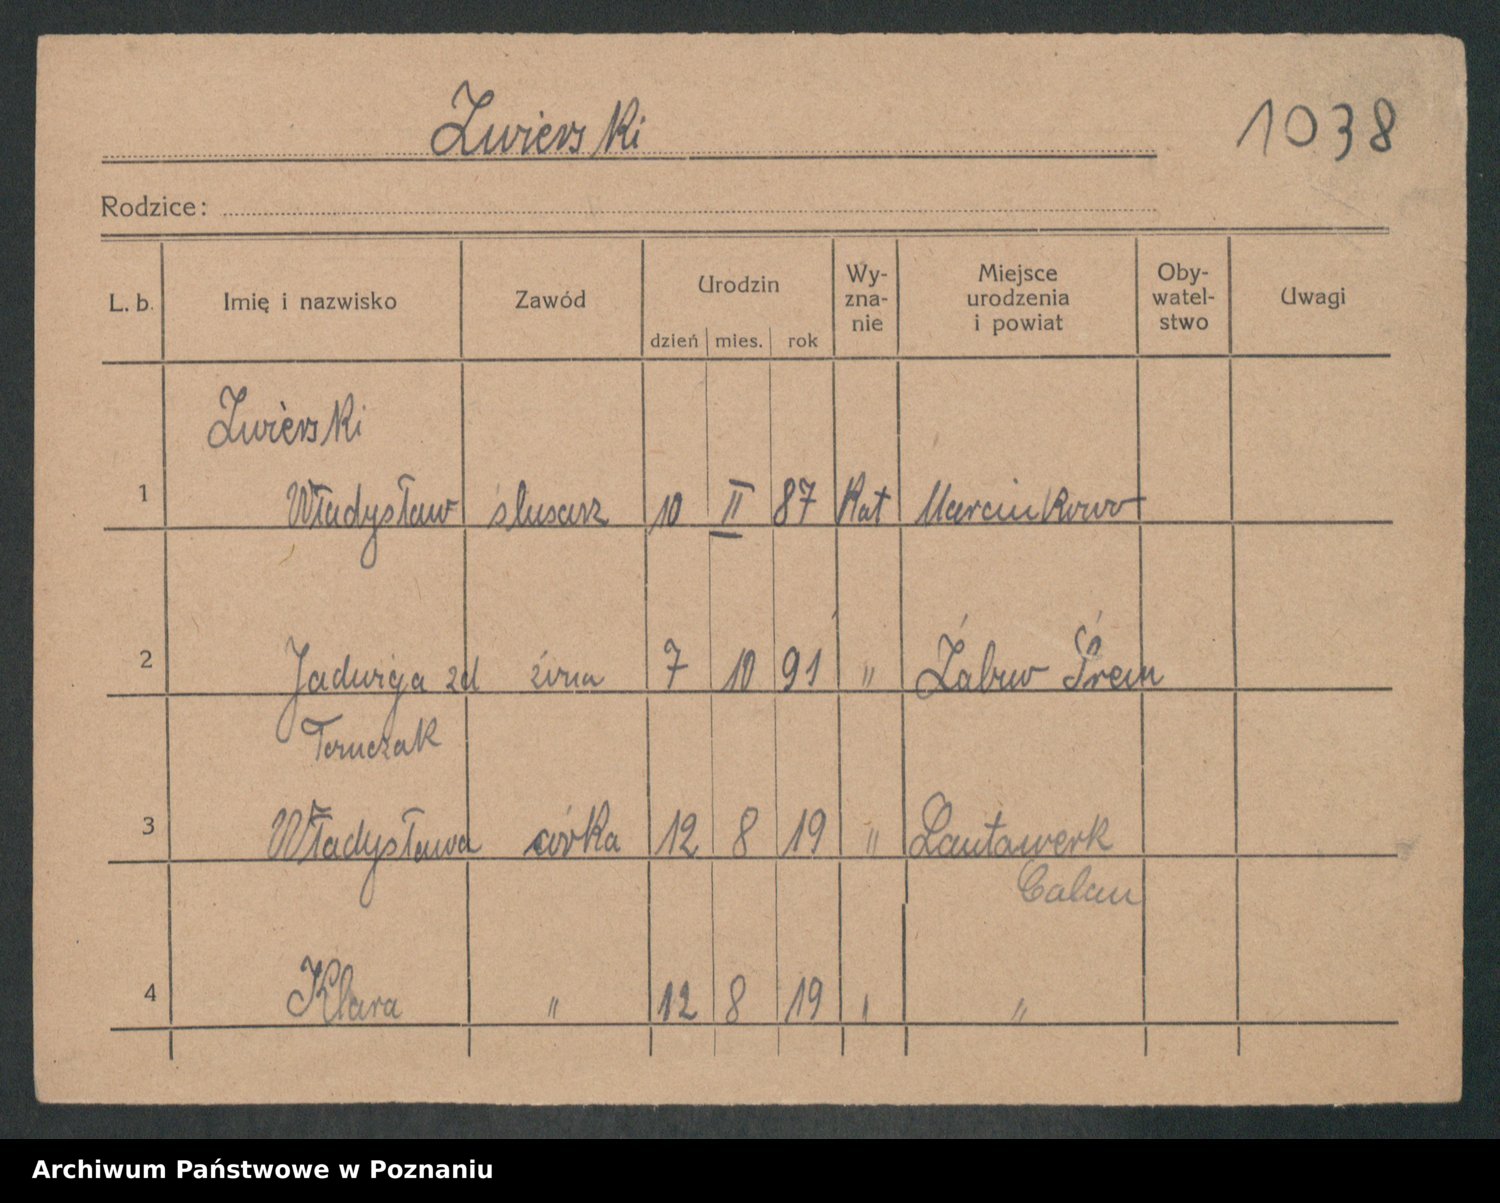 Zwierski
1038
Rodzice:
L. b. Imię i nazwisko Zawód Urodzin dzień mies. rok Wy-zna-nie Miejsce urodzenia i powiat Oby-watel-stwo Uwagi
Zwierski
1 Władysław ślusarz 10 II 87 Kat Marcinkowo
2 Jadwiga zd żona 7 10 91 " Śrem
3 Władysława córka 12 8 19 " Lautawerk
Calau
4 Klara " 12 8 19 " "
Archiwum Państwowe w Poznaniu